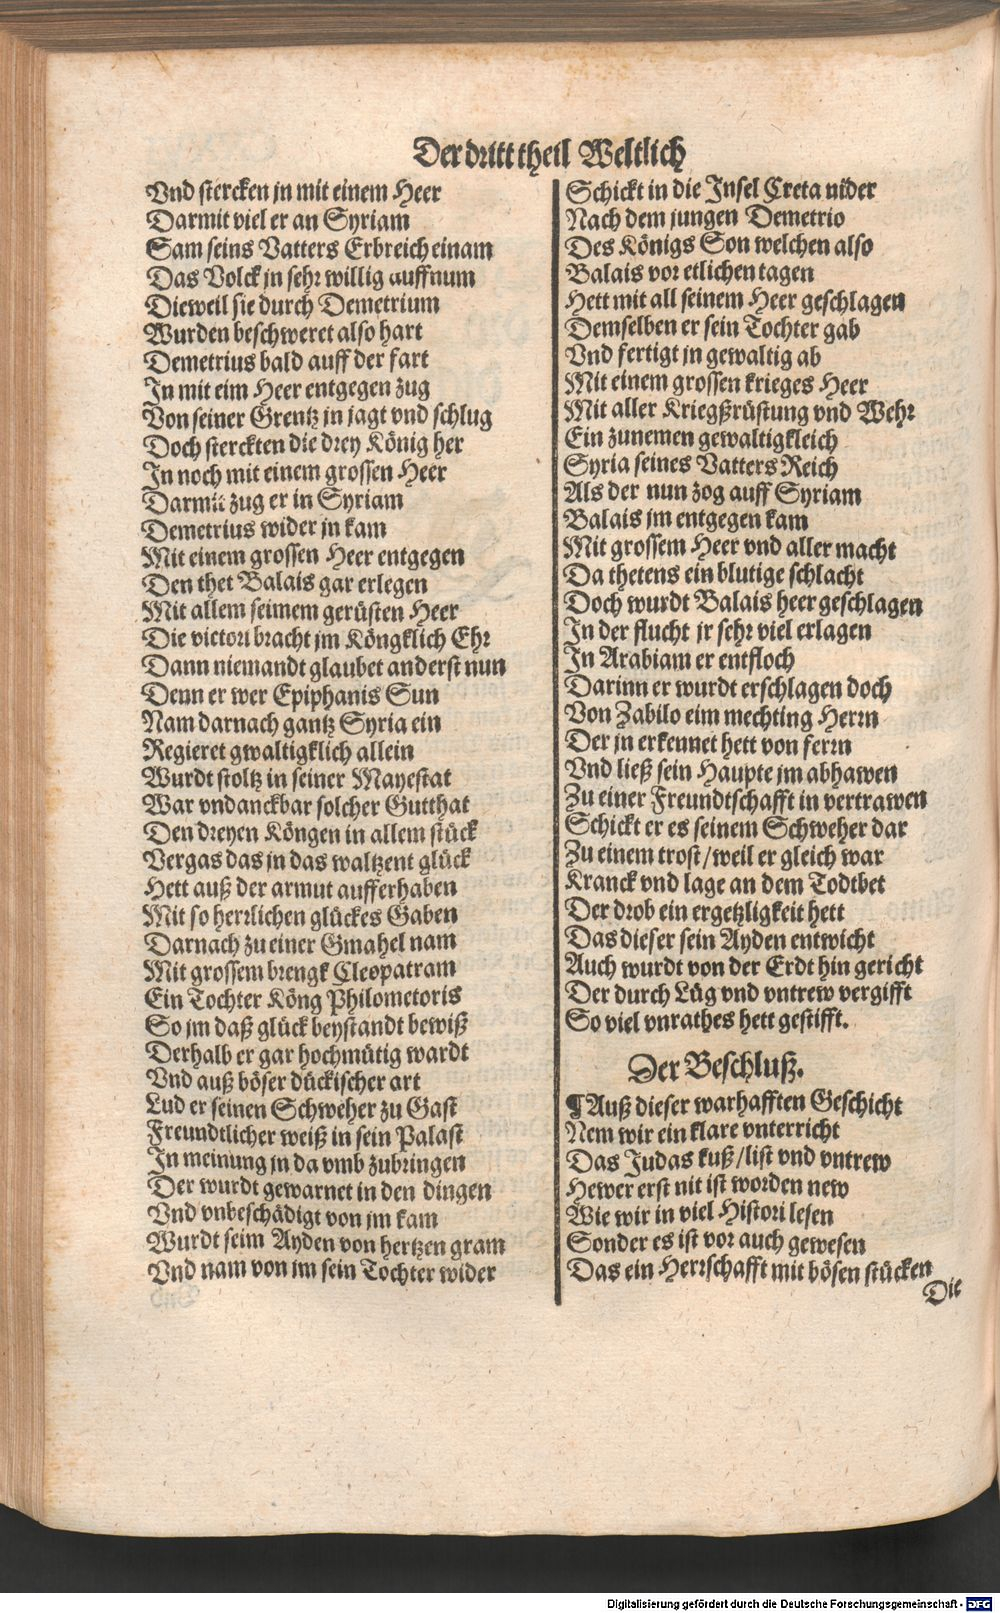 Der dritt theil Weltlich
Vnd stercken jn mit einem Heer
Darmit viel er an Syriam
Sam seins Vatters Erbreich einam
Das Volck jn sehr willig auffnum
Dieweil sie durch Demetrium
Wurden beschweret also hart
Demetrius bald auff der fart
In mit eim Heer entgegen zug
Von seiner Grentz jn jagt vnd schlug
Doch sterckten die drey König her
In noch mit einem grossen Heer
Darmit zug er in Syriam
Demetrius wider jn kam
Mit einem grossen Heer entgegen
Den thet Balais gar erlegen
Mit allem seimem gerüsten Heer
Die victori bracht jm Köngklich Ehr
Dann niemandt glaubet anderst nun
Denn er wer Epiphanis Sun
Nam darnach gantz Syria ein
Regieret gwaltigklich allein
Wurdt stoltz in seiner Mayestat
War vndanckbar solcher Gutthat
Den dreyen Köngen in allem stück
Vergas das jn das waltzent glück
Hett auß der armut aufferhaben
Mit so herrlichen glückes Gaben
Darnach zu einer Gmahel nam
Mit grossem brengk Cleopatram
Ein Tochter Köng Philometoris
So jm daß glück beystandt bewiß
Derhalb er gar hochmütig wardt
Vnd auß böser dückischer art
Lud er seinen Schweher zu Gast
Freundtlicher weiß in sein Palast
In meinung jn da vmb zubringen
Der wurdt gewarnet in den dingen
Vnd vnbeschädigt von jm kam
Wurdt seim Ayden von hertzen gram
Vnd nam von jm sein Tochter wider
Schickt in die Insel Creta nider
Nach dem jungen Demetrio
Des Königs Son welchen also
Balais vor etlichen tagen
Hett mit all seinem Heer geschlagen
Demselben er sein Tochter gab
Vnd fertigt jn gewaltig ab
Mit einem grossen krieges Heer
Mit aller Kriegßrüstung vnd Wehr
Ein zunemen gewaltigkleich
Syria seines Vatters Reich
Als der nun zog auff Syriam
Balais jm entgegen kam
Mit grossem Heer vnd aller macht
Da thetens ein blutige schlacht
Doch wurdt Balais heer geschlagen
In der flucht jr sehr viel erlagen
In Arabiam er entfloch
Darinn er wurdt erschlagen doch
Von Zabilo eim mechting Herrn
Der jn erkennet hett von ferrn
Vnd ließ sein Haupte jm abhawen
Zu einer Freundtschafft in vertrawen
Schickt er es seinem Schweher dar
Zu einem trost/weil er gleich war
Kranck vnd lage an dem Todtbet
Der drob ein ergetzligkeit hett
Das dieser sein Ayden entwicht
Auch wurdt von der Erdt hin gericht
Der durch Lüg vnd vntrew vergifft
So viel vnrathes hett gestifft.
Der Beschluß.
¶Auß dieser warhafften Geschicht
Nem wir ein klare vnterricht
Das Judas kuß/list vnd vntrew
Hewer erst nit ist worden new
Wie wir in viel Histori lesen
Sonder es ist vor auch gewesen
Das ein Herrschafft mit bösen stücken
Die
Digitalisierung gefördert durch die Deutsche Forschungsgemeinschaft - DFG